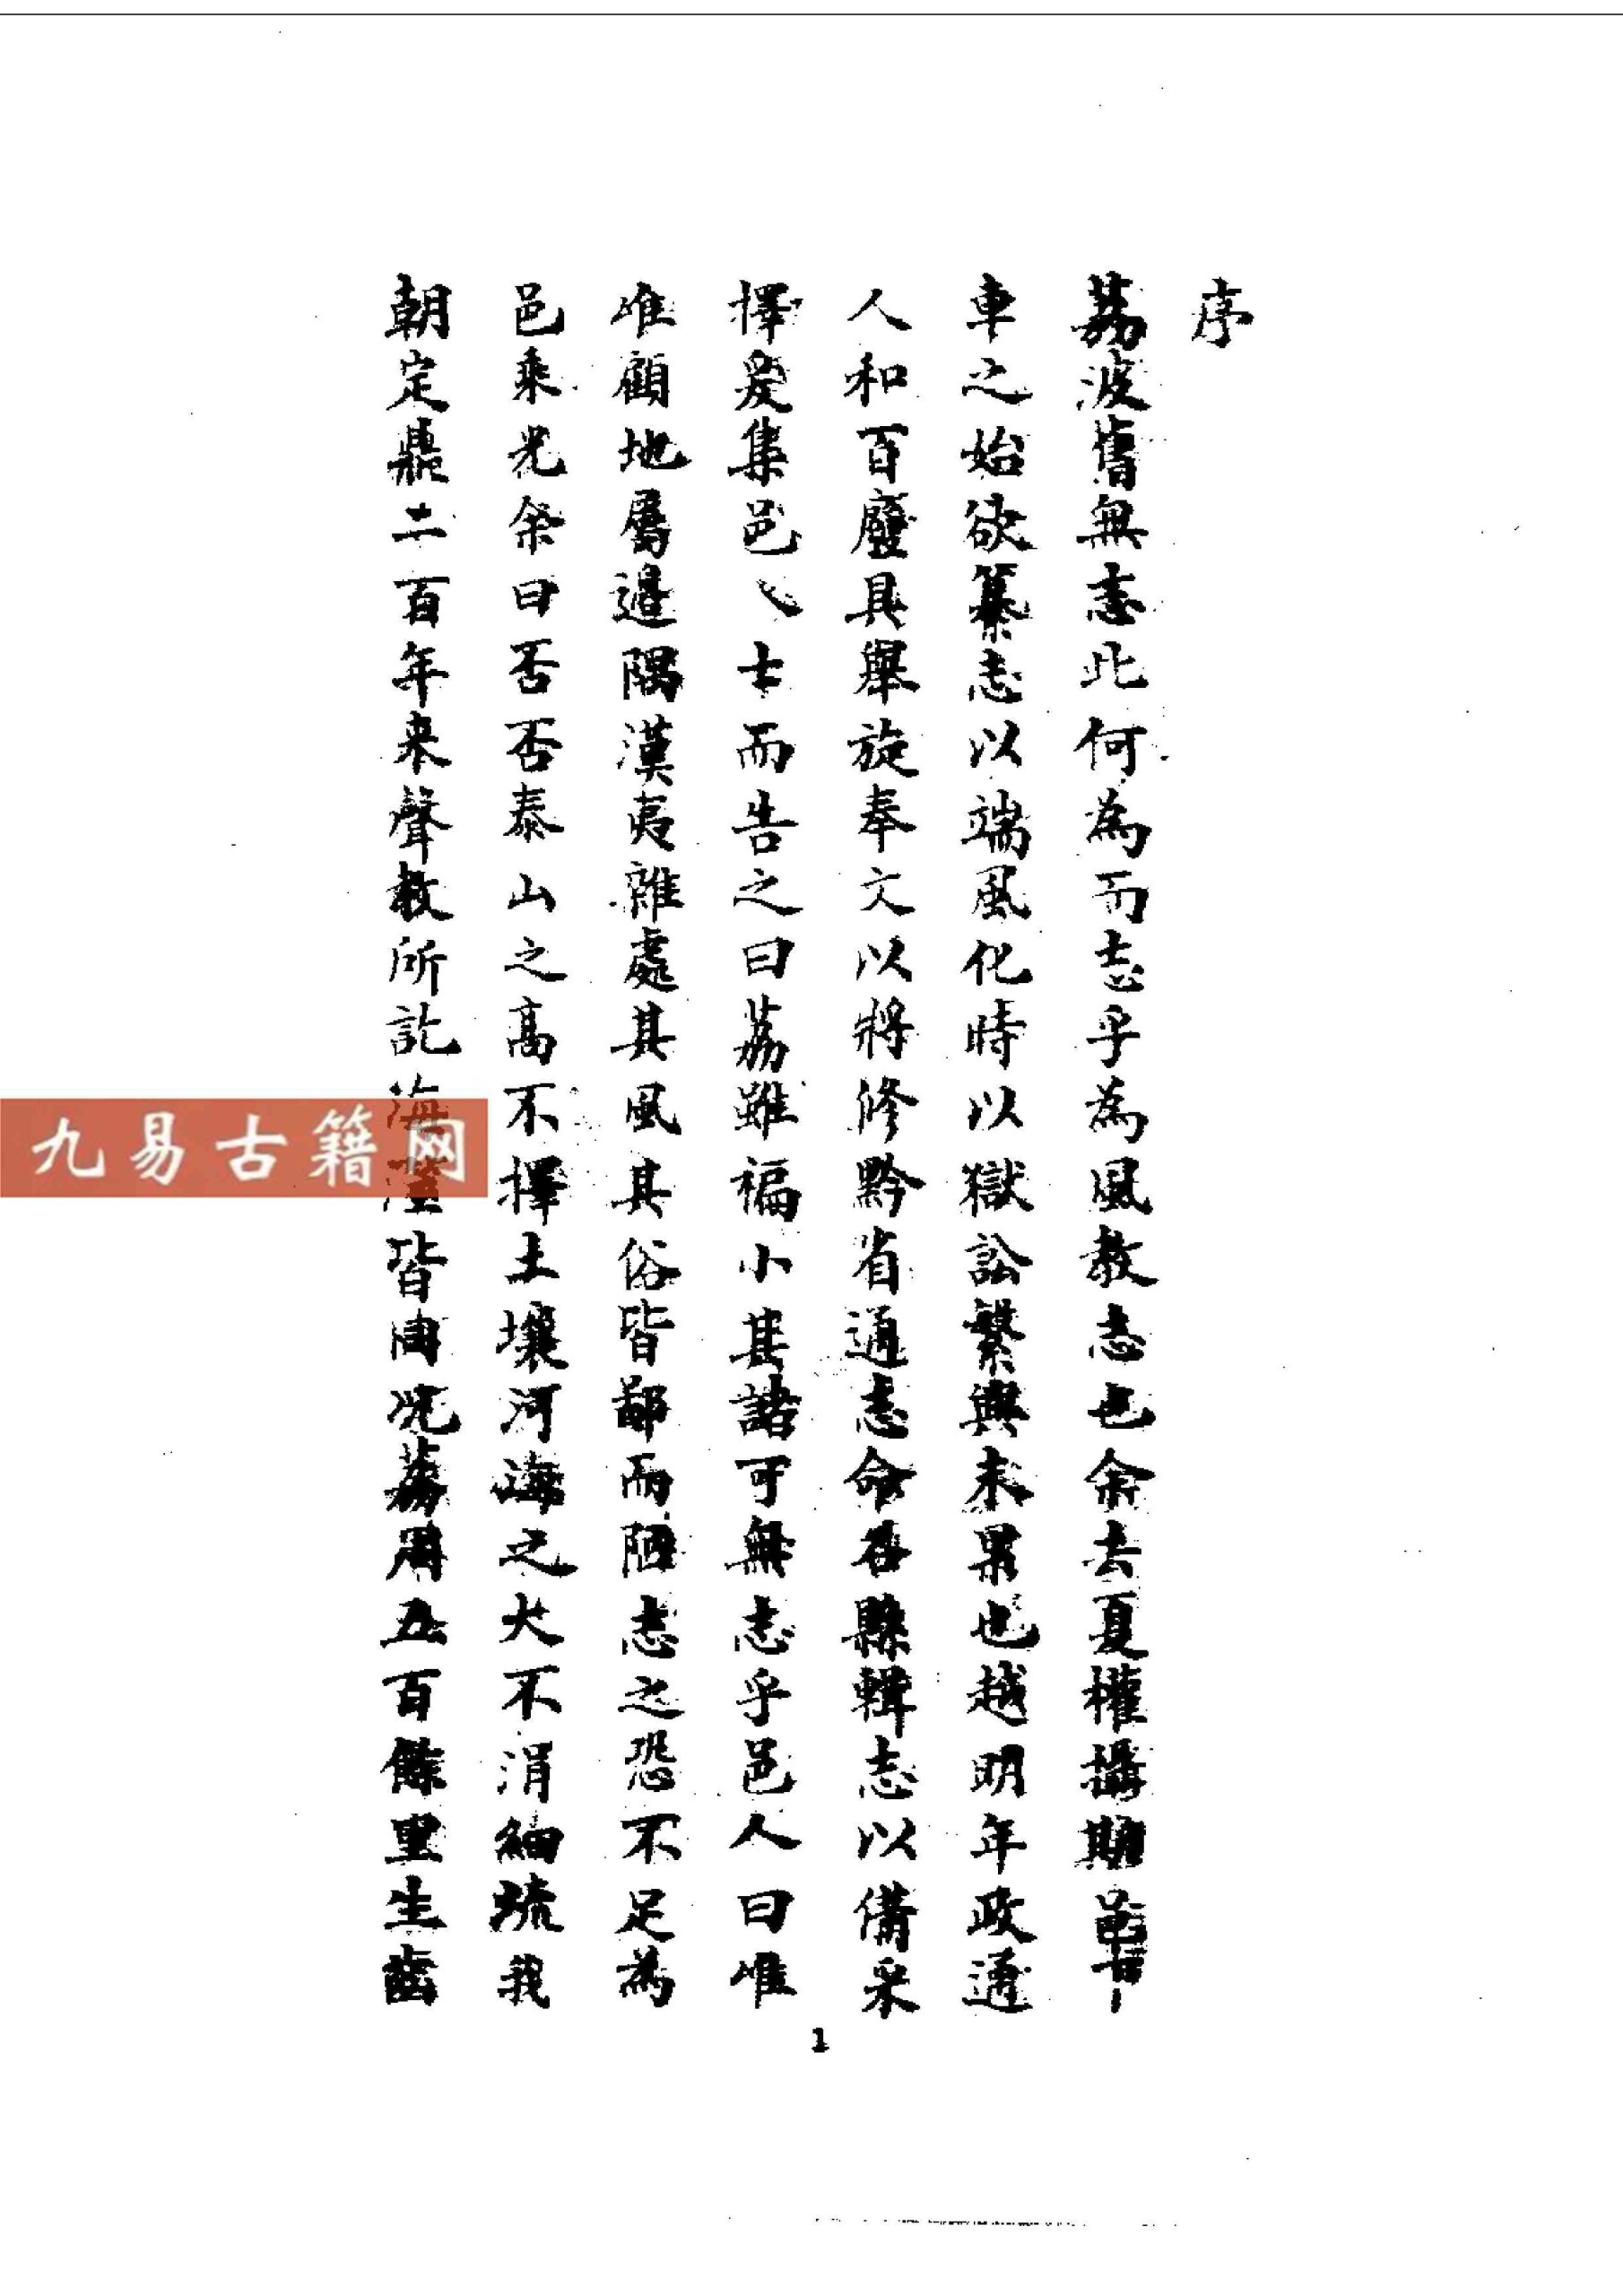 序
荔波舊無志此何為而志乎為風教志也余去夏權攝期邑下
車之始欲纂志以端風化時以獄訟繁興未果也越明年政通
人和百廢具舉旋奉文以將修黔省通志命各縣輯志以備采
擇爰集邑人士而告之曰荔雖褊小其諸可無志乎邑人曰唯
唯顧地屬邊隅漢夷雜處其風其俗皆鄙而陋志之恐不足為
邑乘光余曰否否泰山之高不擇土壤河海之大不涓細流我
朝定鼎二百年來聲教所訖海隅皆同況荔周五百餘里生齒
1
九易古籍网